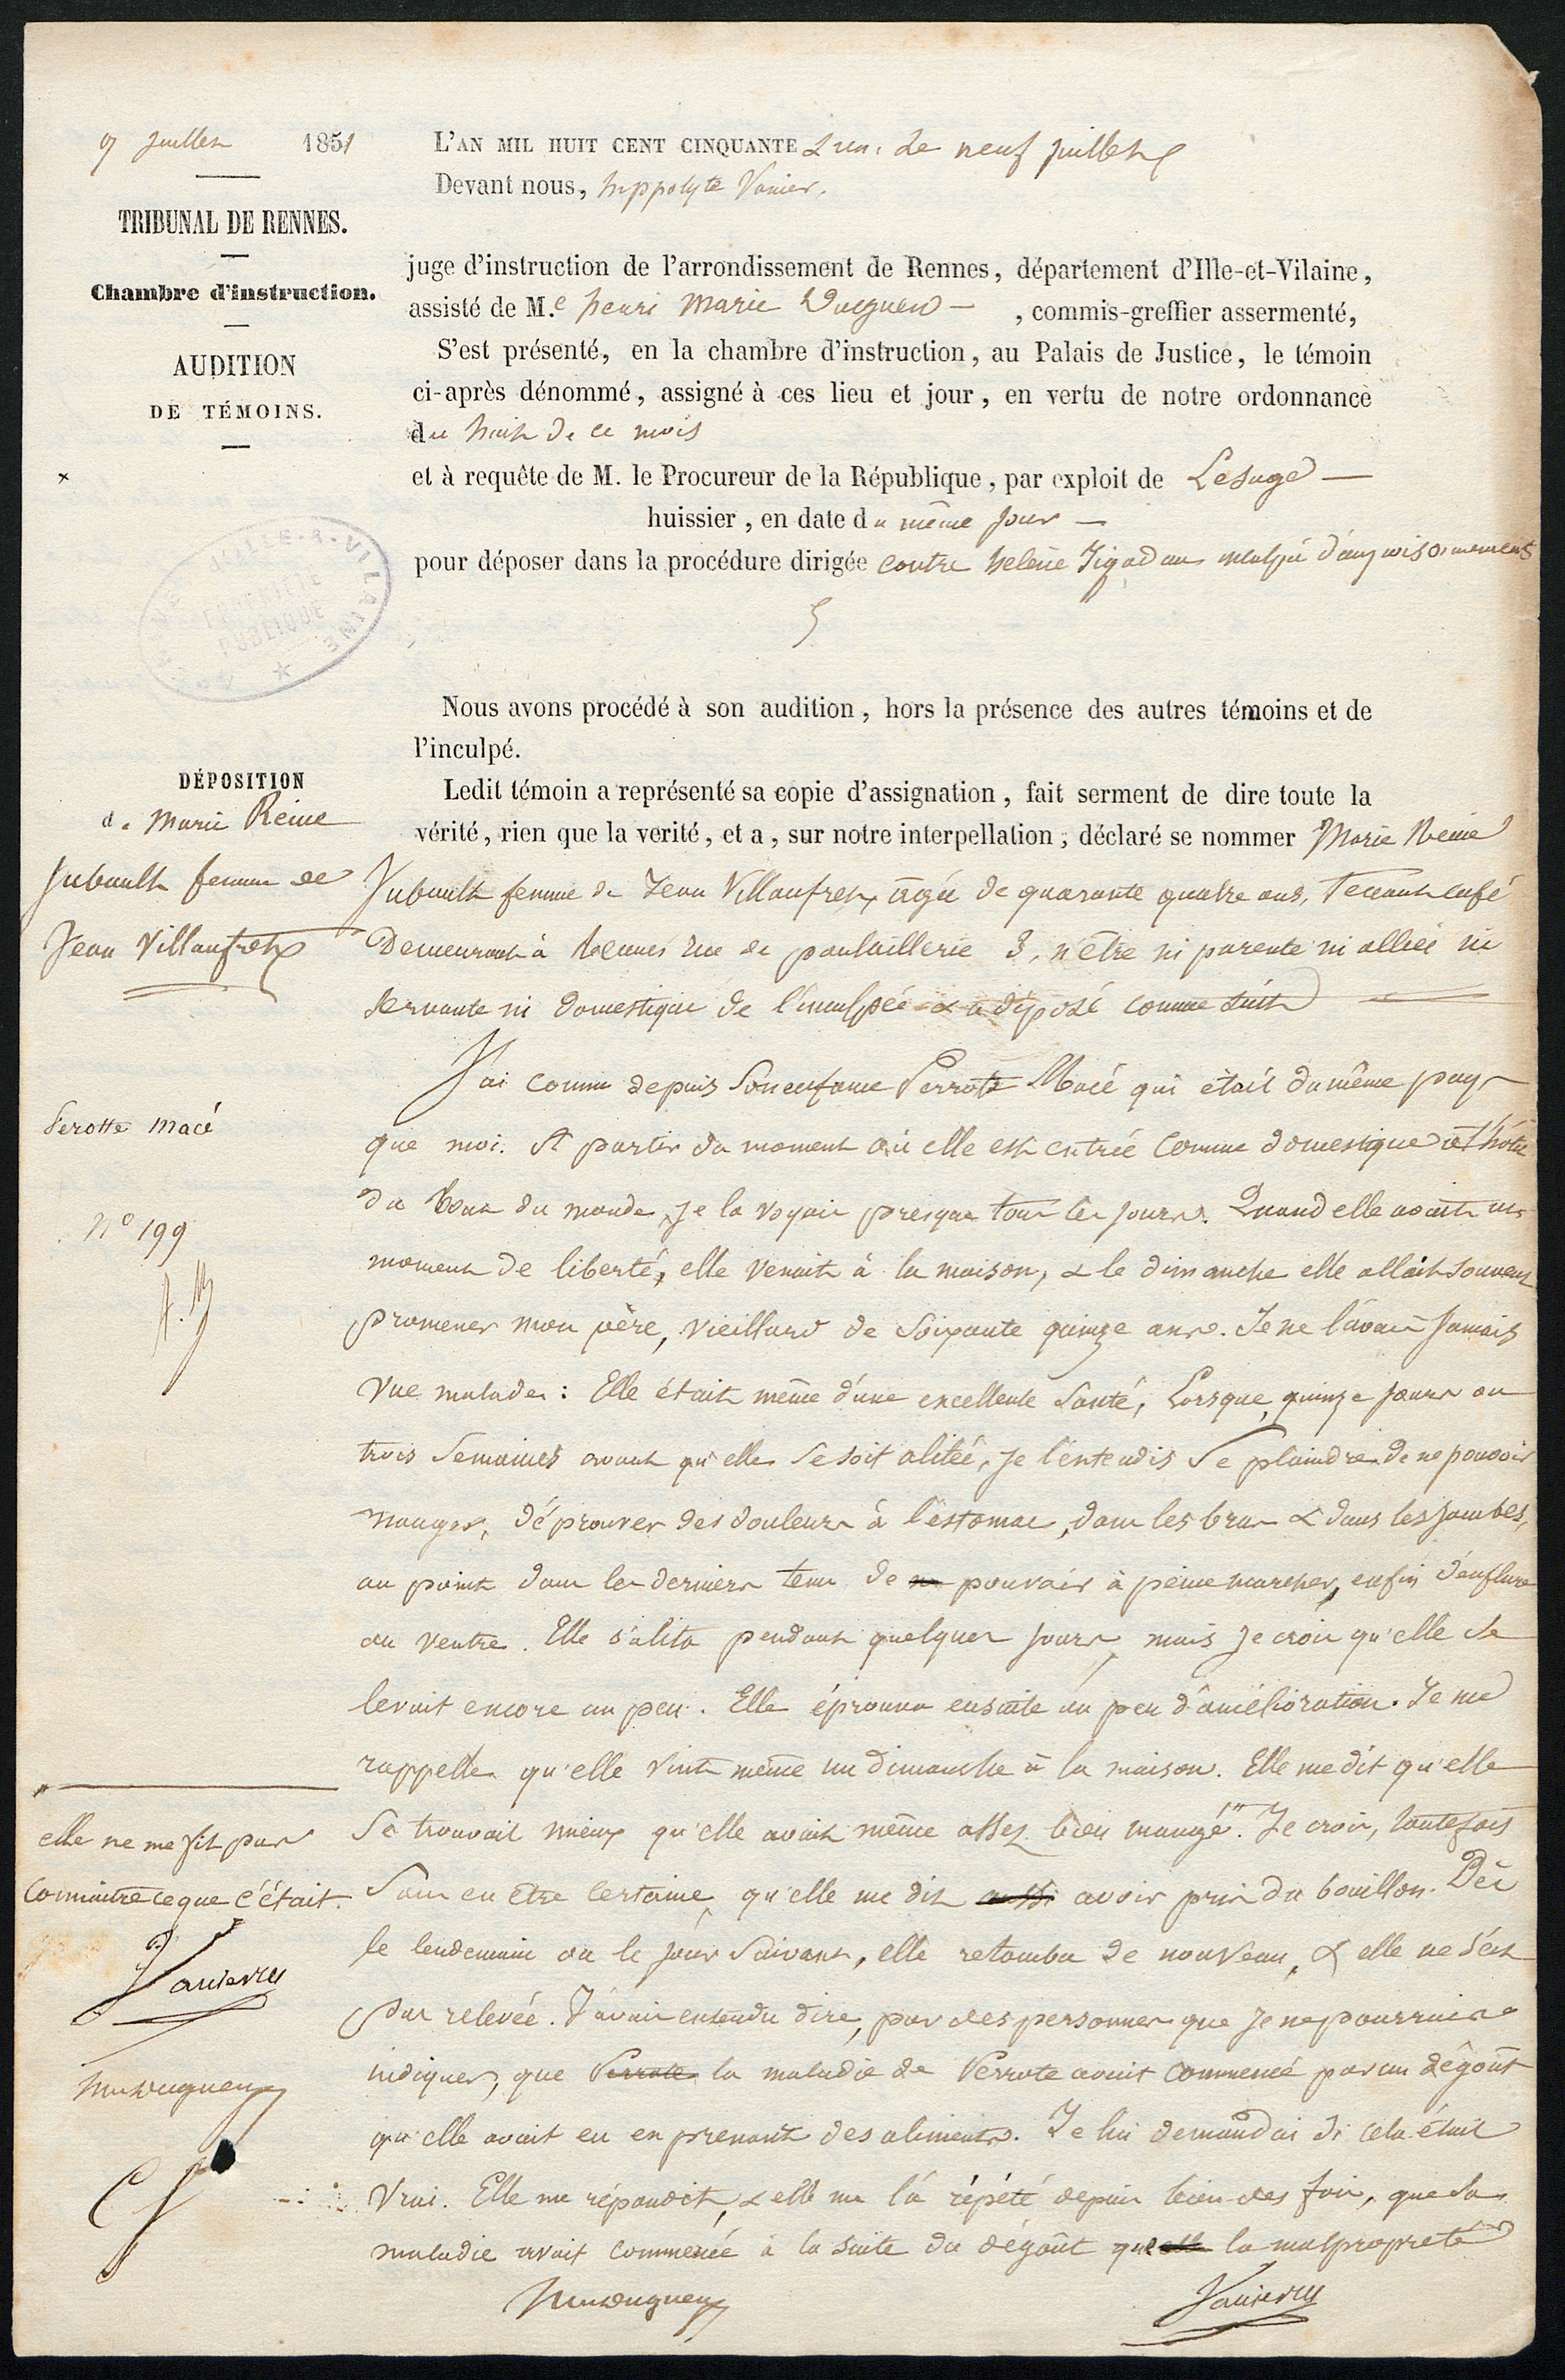 9 juillet 1851
TRIBUNAL DE RENNES.
Chambre d'instruction.
AUDITION
DE TÉMOINS.
L'AN MIL HUIT CENT CINQUANTE & un, le neuf juillet
Devant nous, hippolyte Vanier,
juge d'instruction de l'arrondissement de Rennes, département d'Ille-et-Vilaine,
assisté de M.e henri Marie — , commis-greffier assermenté,
S'est présenté, en la chambre d'instruction, au Palais de Justice, le témoin
ci-après dénommé, assigné à ces lieu et jour, en vertu de notre ordonnance
du huit de ce mois
et à requête de M. le Procureur de la République, par exploit de Lesage —
huissier, en date du même jour —
pour déposer dans la procédure dirigée contre helène Jégado inculpée d'empoisonnements
ILLE-&-VILAINE
PUBLIQUE
Nous avons procédé à son audition, hors la présence des autres témoins et de
l'inculpé.
DÉPOSITION
de Marie Reine
Jubault femme de
Jean Villaufret
Ledit témoin a représenté sa copie d'assignation, fait serment de dire toute la
vérité, rien que la verité, et a, sur notre interpellation, déclaré se nommer Marie Reine
Jubault femme de Jean Villaufret, âgée de quarante quatre ans, tenant café
Demeurant à Rennes rue de poulaillerie 3, n'être ni parente ni alliée ni
servante ni domestique de l'inculpée & a déposé comme suit
J'ai connu depuis son enfance Perrotte Macé qui était du même pays
que moi. A partir du moment où elle est entrée comme domestique à l'hôtel
du bout du monde, je la voyais presque tous les jours. Quand elle avait un
moment de liberté, elle venait à la maison, & le dimanche elle allait souvent
promener mon père, vieillard de soixante quinze ans. Je ne l'avais jamais
vue malade : Elle était même d'une excellente santé, Lorsque, quinze jours ou
trois semaines avant qu'elle se soit alitée, je l'entendis se plaindre de ne pouvoir
manger, d'éprouver des douleurs à l'estomac, dans les bras & dans les jambes,
au point dans les derniers tems de pouvoir à peine marcher, enfin d'enflure
au ventre. Elle s'alita pendant quelques jours, mais je crois qu'elle se
levait encore un peu. Elle éprouva ensuite un peu d'amélioration. Je me
rappelle qu'elle vint même un dimanche à la maison. Elle me dit qu'elle
se trouvait mieux qu'elle avait même assez bien mangé. Je crois, toutefois
sans en être certaine, qu'elle me dit aussi avoir pris du bouillon. Dès
le lendemain ou le jour suivant, elle retomba de nouveau, & elle ne s'est
pas relevée. J'avais entendu dire, par des personnes que je ne pourrais
indiquer, que Perrotte la maladie de Perrote avait commencé par un dégoût
qu'elle avait eu en prenant des aliments. Je lui demandai si cela était
vrai. Elle me répondit, & elle me l'a répété depuis bien des fois, que sa
maladie avait commencée à la suite du dégoût que elle la malpropreté
Perotte Macé
N° 199
elle ne me fit pas
connaitre ce que c'était.
Vanier
Vanier